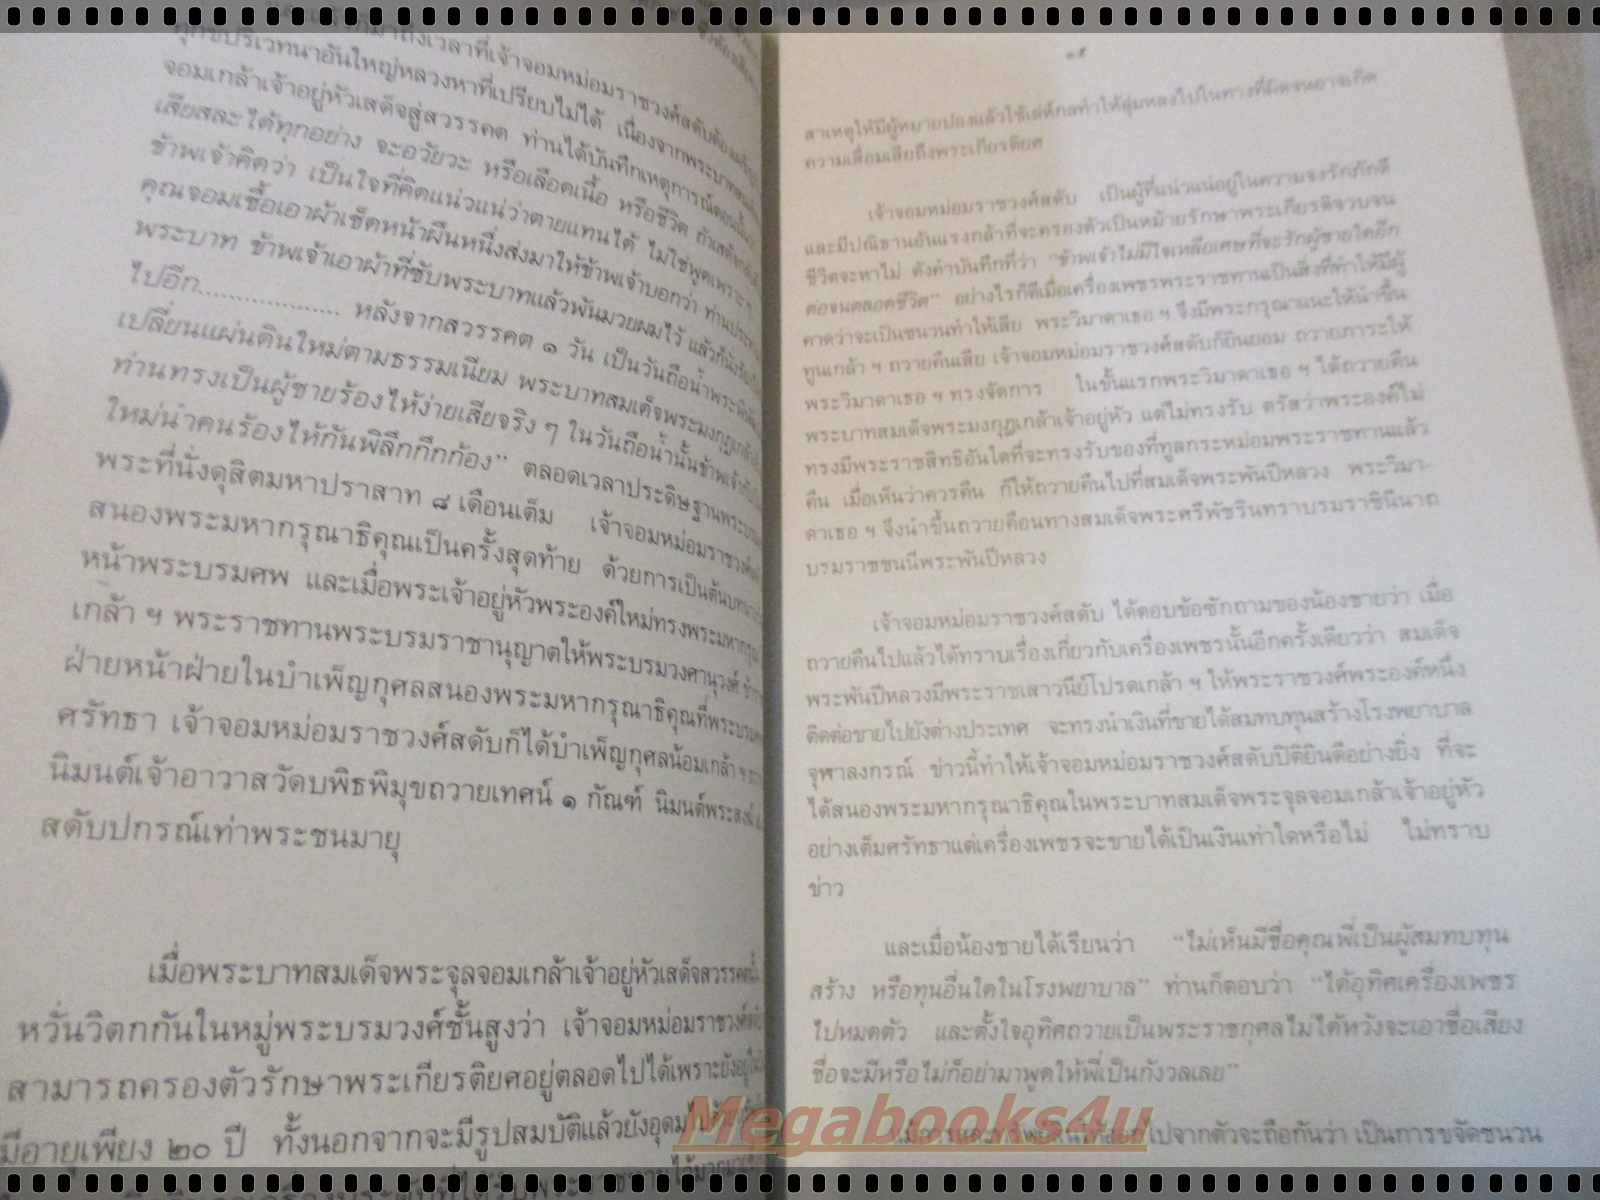 และแล้วก็มาถึงเวลาที่เจ้าจอมหม่อมราชวงศ์สดับต้อง
ทุกขปริเวทนาอันใหญ่หลวงหาที่เปรียบไม่ได้ เนื่องจากพระบาทสมเด็จ
จอมเกล้าเจ้าอยู่หัวเสด็จสู่สวรรคต ท่านได้บันทึกเหตุการณ์ตอนนั้นว่า
เสียสละได้ทุกอย่าง จะอวัยวะ หรือเลือดเนื้อ หรือชีวิต ถ้าเสด็จกลับ
ข้าพเจ้าคิดว่า เป็นใจที่คิดแน่วแน่ว่าตายแทนได้ ไม่ใช่พูดเพราะ ๆ
คุณจอมเชื้อเอาผ้าเช็ดหน้าผืนหนึ่งส่งมาให้ข้าพเจ้าบอกว่า
พระบาท ข้าพเจ้าเอาผ้าที่ซับพระบาทแล้วพันมวยผมไว้ แล้วก็นั่งร้องไห้
ไปอีก.................. หลังจากสวรรคต ๑ วัน เป็นวันถือน้ำพระพิพัฒน์
เปลี่ยนแผ่นดินใหม่ตามธรรมเนียม พระบาทสมเด็จพระมงกุฎเกล้า
ท่านทรงเป็นผู้ชายร้องไห้ง่ายเสียจริง ๆ ในวันถือน้ำนั้นข้าพเจ้า
ใหม่นำคนร้องไห้กันพิลึกกึกก้อง” ตลอดเวลาประดิษฐานพระบรม
พระที่นั่งดุสิตมหาปราสาท ๘ เดือนเต็ม เจ้าจอมหม่อมราชวงศ์
สนองพระมหากรุณาธิคุณเป็นครั้งสุดท้าย ด้วยการเป็นต้นบท
หน้าพระบรมศพ และเมื่อพระเจ้าอยู่หัวพระองค์ใหม่ทรงพระมหากรุณา
เกล้า ฯ พระราชทานพระบรมราชานุญาตให้พระบรมวงศานุวงศ์
ฝ่ายหน้าฝ่ายในบำเพ็ญกุศลสนองพระมหากรุณาธิคุณที่พระบรม
ศรัทธา เจ้าจอมหม่อมราชวงศ์สดับก็ได้บำเพ็ญกุศลน้อมเกล้า ฯ
นิมนต์เจ้าอาวาสวัดบพิธพิมุขถวายเทศน์ ๑ กัณฑ์ นิมนต์พระสงฆ์
สดับปกรณ์เท่าพระชนมายุ
เมื่อพระบาทสมเด็จพระจุลจอมเกล้าเจ้าอยู่หัวเสด็จสวรรคตนั้น
หวั่นวิตกกันในหมู่พระบรมวงศ์ชั้นสูงว่า เจ้าจอมหม่อมราชวงศ์
สามารถครองตัวรักษาพระเกียรติยศอยู่ตลอดไปได้เพราะยังอยู่
มีอายุเพียง ๒๐ ปี ทั้งนอกจากจะมีรูปสมบัติแล้วยังอุดม
๑๕
สาเหตุให้มีผู้หมายปองแล้วใช้เล่ห์กลทำให้ลุ่มหลงไปในทางที่ผิดจนอาจเกิด
ความเสื่อมเสียถึงพระเกียรติยศ
เจ้าจอมหม่อมราชวงศ์สดับ เป็นผู้ที่แน่วแน่อยู่ในความจงรักภักดี
และมีปณิธานอันแรงกล้าที่จะครองตัวเป็นหม้ายรักษาพระเกียรติจวบจน
ชีวิตจะหาไม่ ดังคำบันทึกที่ว่า “ข้าพเจ้าไม่มีใจเหลือเศษที่จะรักผู้ชายใดอีก
ต่อจนตลอดชีวิต” อย่างไรก็ดีเมื่อเครื่องเพชรพระราชทานเป็นสิ่งที่ทำให้มีผู้
คาดว่าจะเป็นชนวนทำให้เสีย พระวิมาดาเธอ ฯ จึงมีพระกรุณาแนะให้นำขึ้น
ทูนเกล้า ฯ ถวายคืนเสีย เจ้าจอมหม่อมราชวงศ์สดับก็ยินยอม ถวายภาระให้
พระวิมาดาเธอ ฯ ทรงจัดการ ในขั้นแรกพระวิมาดาเธอ ฯ ได้ถวายคืน
พระบาทสมเด็จพระมงกุฎเกล้าเจ้าอยู่หัว แต่ไม่ทรงรับ ตรัสว่าพระองค์ไม่
ทรงมีพระราชสิทธิอันใดที่จะทรงรับของที่ทูลกระหม่อมพระราชทานแล้ว
คืน เมื่อเห็นว่าควรคืน ก็ให้ถวายคืนไปที่สมเด็จพระพันปีหลวง พระวิมา-
ดาเธอ ฯ จึงนำขึ้นถวายคือนทางสมเด็จพระศรีพัชรินทราบรมราชินีนาถ
บรมราชชนนีพระพันปีหลวง
เจ้าจอมหม่อมราชวงศ์สดับ ได้ตอบข้อซักถามของน้องชายว่า เมื่อ
ถวายคืนไปแล้วได้ทราบเรื่องเกี่ยวกับเครื่องเพชรนั้นอีกครั้งเดียวว่า สมเด็จ
พระพันปีหลวงมีพระราชเสาวนีย์โปรดเกล้า ฯ ให้พระราชวงศ์พระองค์หนึ่ง
ติดต่อขายไปยังต่างประเทศ จะทรงนำเงินที่ขายได้สมทบทุนสร้างโรงพยาบาล
จุฬาลงกรณ์ ข่าวนี้ทำให้เจ้าจอมหม่อมราชวงศ์สดับปิติยินดีอย่างยิ่ง ที่จะ
ได้สนองพระมหากรุณาธิคุณในพระบาทสมเด็จพระจุลจอมเกล้าเจ้าอยู่หัว
อย่างเต็มศรัทธาแต่เครื่องเพชรจะขายได้เป็นเงินเท่าใดหรือไม่ ไม่ทราบ
ข่าว
และเมื่อน้องชายได้เรียนว่า “ไม่เห็นมีชื่อคุณพี่เป็นผู้สมทบทุน
สร้าง หรือทุนอื่นใดในโรงพยาบาล” ท่านก็ตอบว่า “ได้อุทิศเครื่องเพชร
ไปหมดตัว และตั้งใจอุทิศถวายเป็นพระราชกุศลไม่ได้หวังจะเอาชื่อเสียง
ชื่อจะมีหรือไม่ก็อย่ามาพูดให้พี่เป็นกังวลเลย”
ไปจากตัวจะถือกันว่า เป็นการขจัดชนวน
Megabooks4u